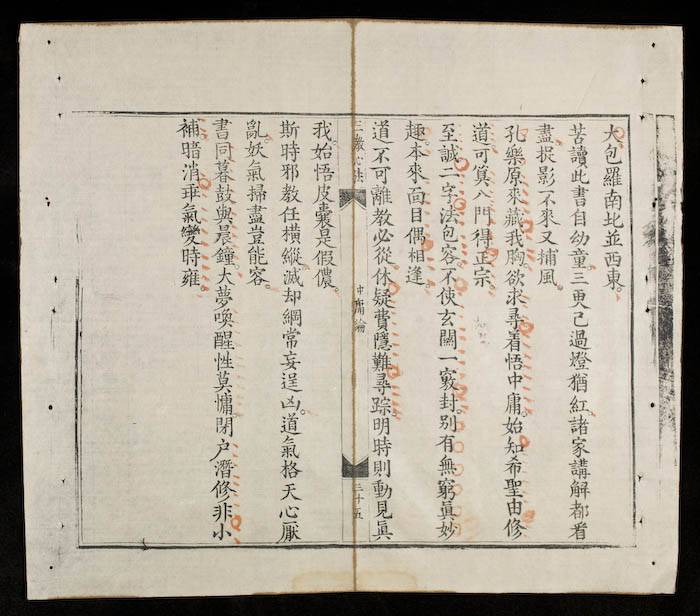 大。包羅南北並西東。
苦讀此書自幼童。三更已過燈猶紅。諸家講解都看
盡。捉影不來又捕風。
孔樂原來藏我胸。欲求尋着悟中庸。始知希聖由修
道。可箕八門得正宗。
至誠二字法包容。不使玄關一竅封。別有無窮眞妙
趣。本來面目偶相逢。
道不可離教必從。休疑費隱難尋踪。明時則動見眞
三教心法
中庸論
三十五
我。始悟皮囊是假儂。
斯時邪教任橫縱。滅却綱常妄逞凶。道氣格天心厭
亂。妖氣掃盡豈能容。
書同暮鼓與晨鐘。大夢喚醒性莫慵。閉户潛修非小
補。暗消乖氣變時雍。